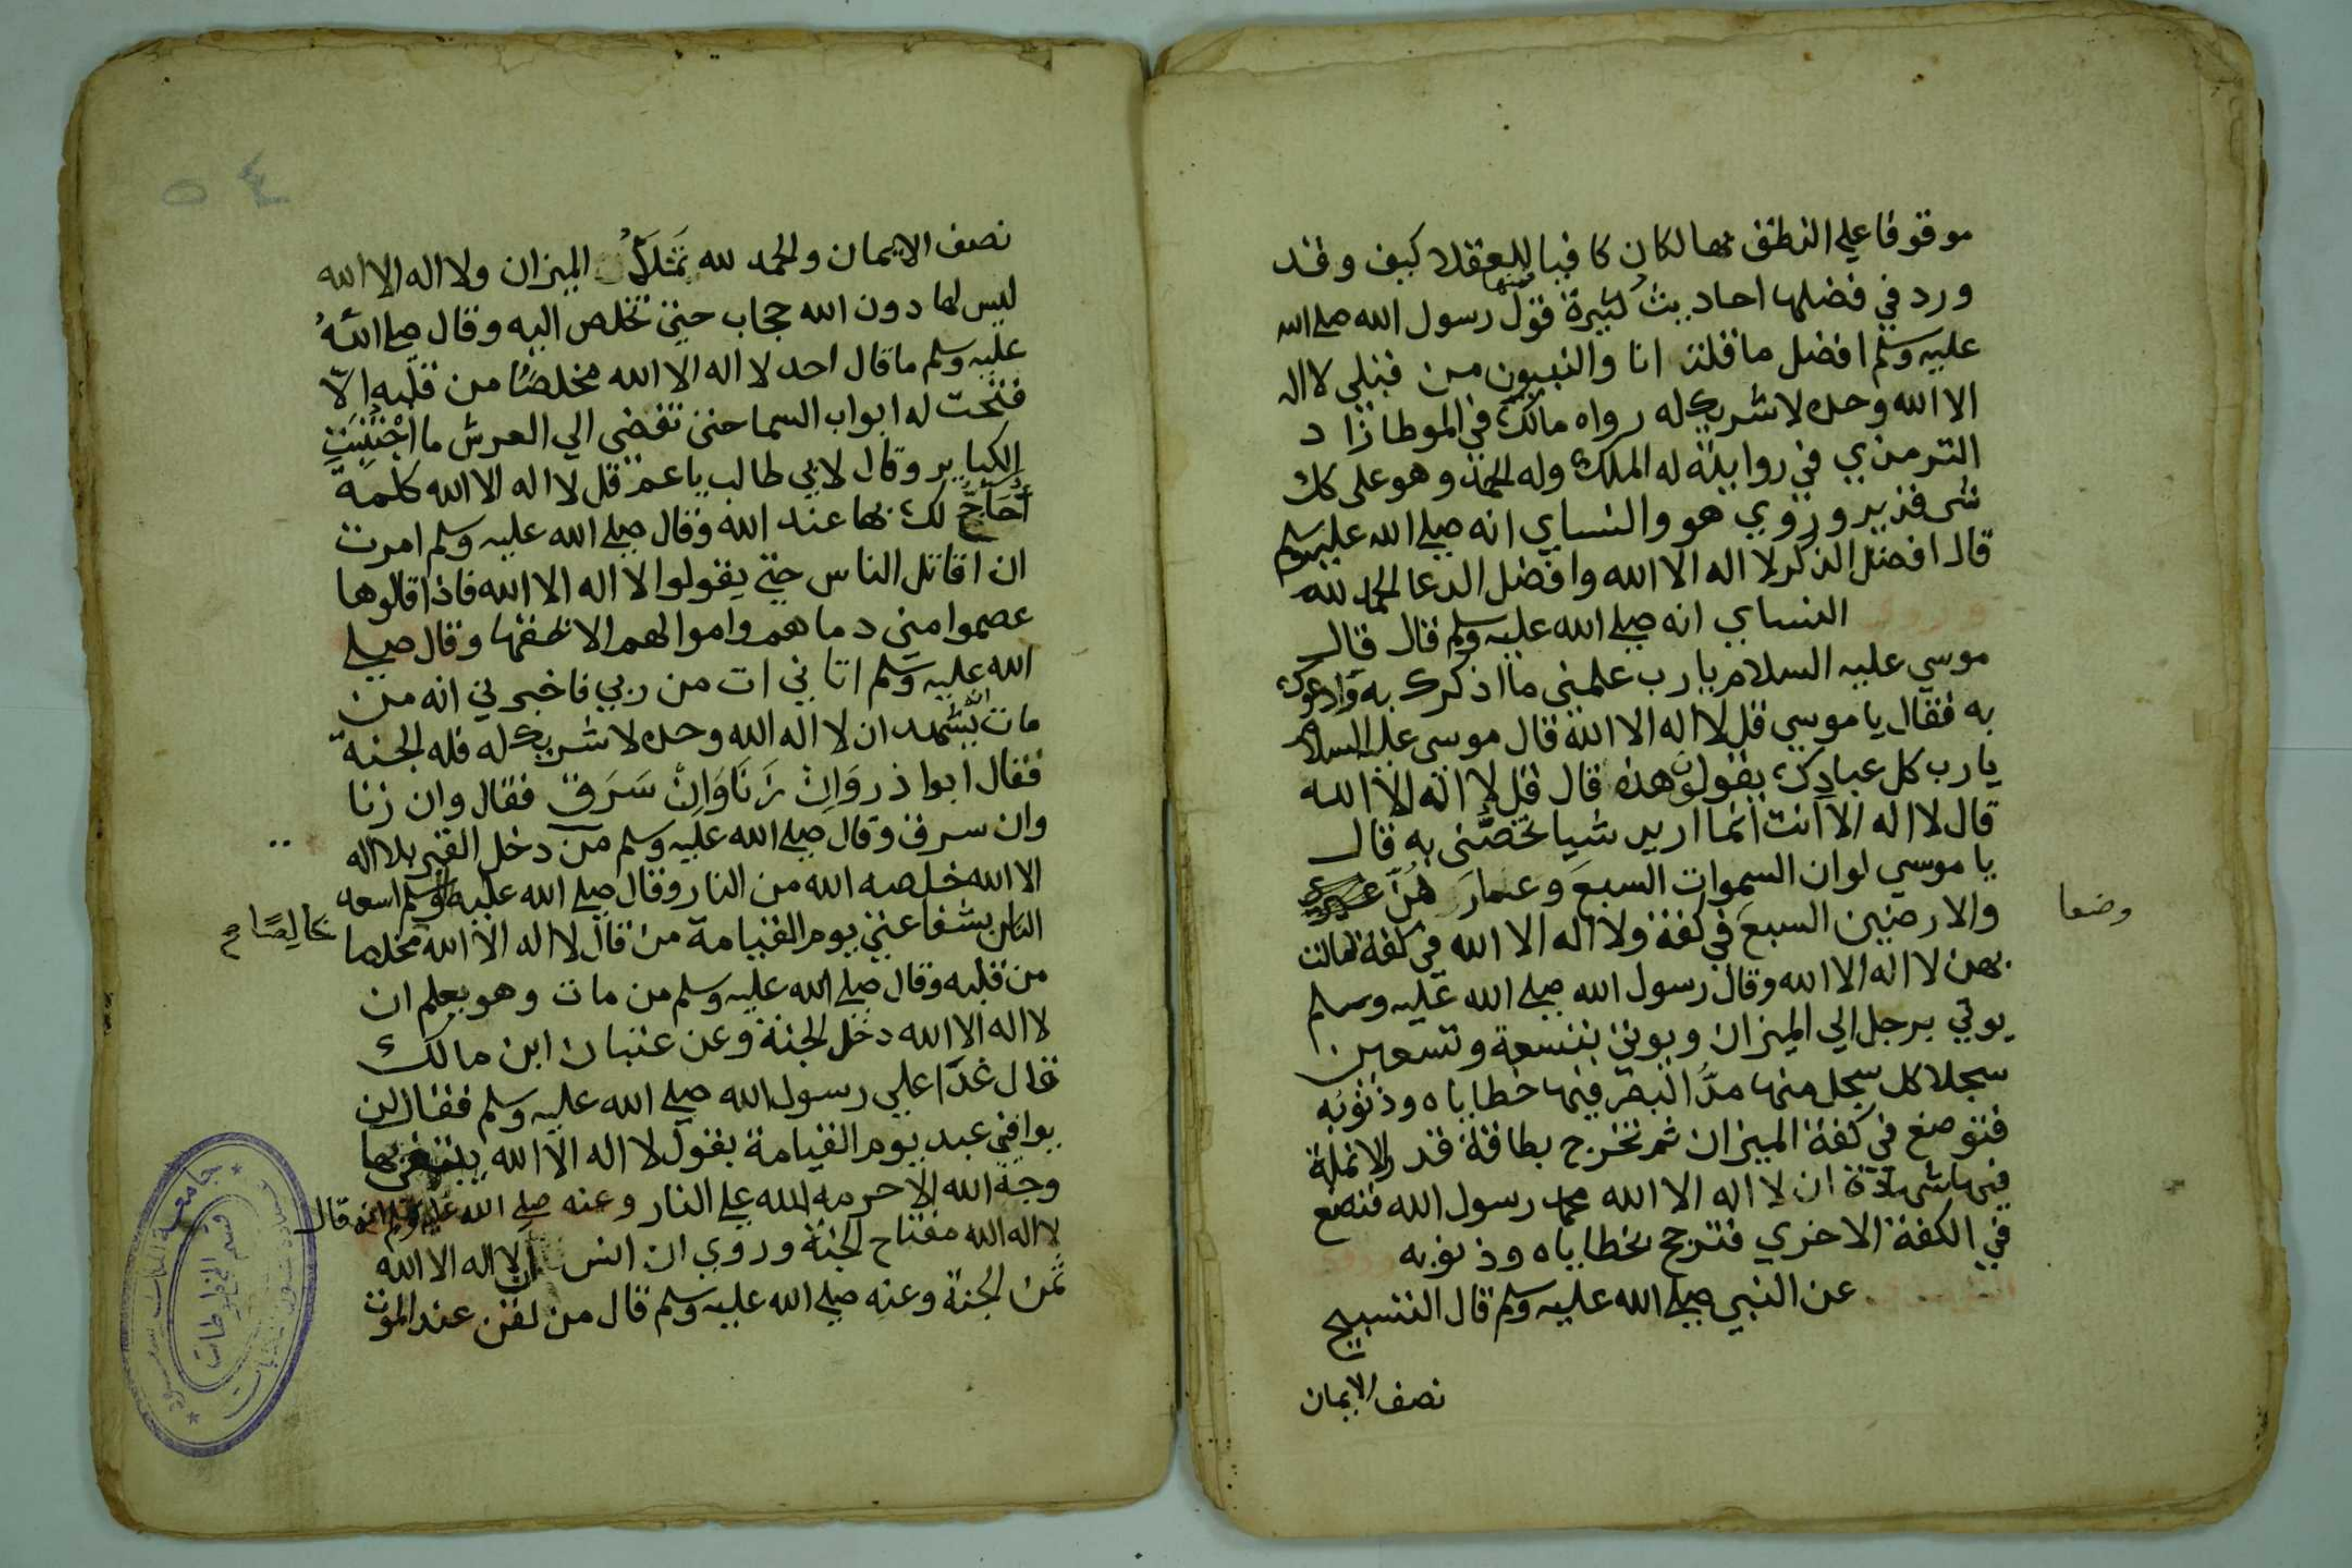 موقوفا علي النطق بها لكان كافيا للعقلا كيف وقد
ورد في فضلها احاديث كثيرة فمنها قول رسول الله صلي الله
عليه وسلم افضل ما قلت انا والنبيون من قبلي لا اله
الا الله وحده لا شريك له رواه مالك في الموطا زاد
الترمذي في روايته له الملك وله الحمد وهو على كل
شى قدير وروي هو والنساي انه صلي الله عليه وسلم
قال افضل الذكر لا اله الا الله وافضل الدعا الحمد لله
وروي النساي انه صلي الله عليه وسلم قال قال
موسي عليه السلام يا رب علمني ما اذكرك به وادعوك
به فقال يا موسي قل لا اله الا الله قال موسي عليه السلام
يا رب كل عبادك يقولون هذه قال قل لا اله الا الله
قال لا اله الا انت انما اريد شيا تخصني به قال
يا موسي لو ان السموات السبع وعمارهن غيري
والارضين السبع في كفة ولا اله الا الله في كفة لمالت
وضعا
بهن لا اله الا الله وقال رسول الله صلي الله عليه وسلم
يوتي برجل الي الميزان ويوتي بتسعة وتسعين
سجلا كل سجل منها مد البصر فيها خطاياه وذنوبه
فتوضع في كفة الميزان ثم تخرج بطاقة قدر الانملة
فيها شهادة ان لا اله الا الله محمد رسول الله فتضع
في الكفة الاخري فترجح بخطاياه وذنوبه
عن النبي صلي الله عليه وسلم قال التسبيح
نصف الايمان
٥٤
نصف الايمان والحمد لله تملأ الميزان ولا اله الا الله
ليس لها دون الله حجاب حتي تخلص اليه وقال صلي الله
عليه وسلم ما قال احد لا اله الا الله مخلصا من قلبه الا
فتحت له ابواب السما حتى تفضى الي العرش ما اجْتُنِبَتِ
الكباير وقال لابي طالب يا عم قل لا اله الا الله كلمة
أُحَاجُّ لك بها عند الله وقال صلي الله عليه وسلم امرت
ان اقاتل الناس حتي يقولوا لا اله الا الله فاذا قالوها
عصموا مني دماهم واموالهم الا بحقها وقال صلي
الله عليه وسلم اتاني ات من ربي فاخبرني انه من
مات يشهد ان لا اله الا الله وحده لا شريك له فله الجنة
فقال ابوا ذر وَاِنْ زَنَا وَاِنْ سَرَقَ فقال وان زنا
وان سرق وقال صلي الله عليه وسلم من دخل القبر بلا اله
الا الله خلصه الله من النار وقال صلي الله عليه وسلم اسعد
الناس بشفاعتي يوم القيامة من قال لا اله الا الله مخلصا
خالِصًا م
من قلبه وقال صلي الله عليه وسلم من مات وهو يعلم ان
لا اله الا الله دخل الجنة وعن عتبان ابن مالك
قال غدا علي رسول الله صلي الله عليه وسلم فقال لن
يوافي عبد يوم القيامة يقول لا اله الا الله يبتغي بها
وجه الله الا حرمه الله علي النار وعنه صلي الله عليه وسلم انه قال
لا اله الله مفتاح الجنة وروي ان انس ان لا اله الا الله
ثمن الجنة وعنه صلي الله عليه وسلم قال من لقن عند الموت
جامعة الملك سعود
قسم المخطوطات